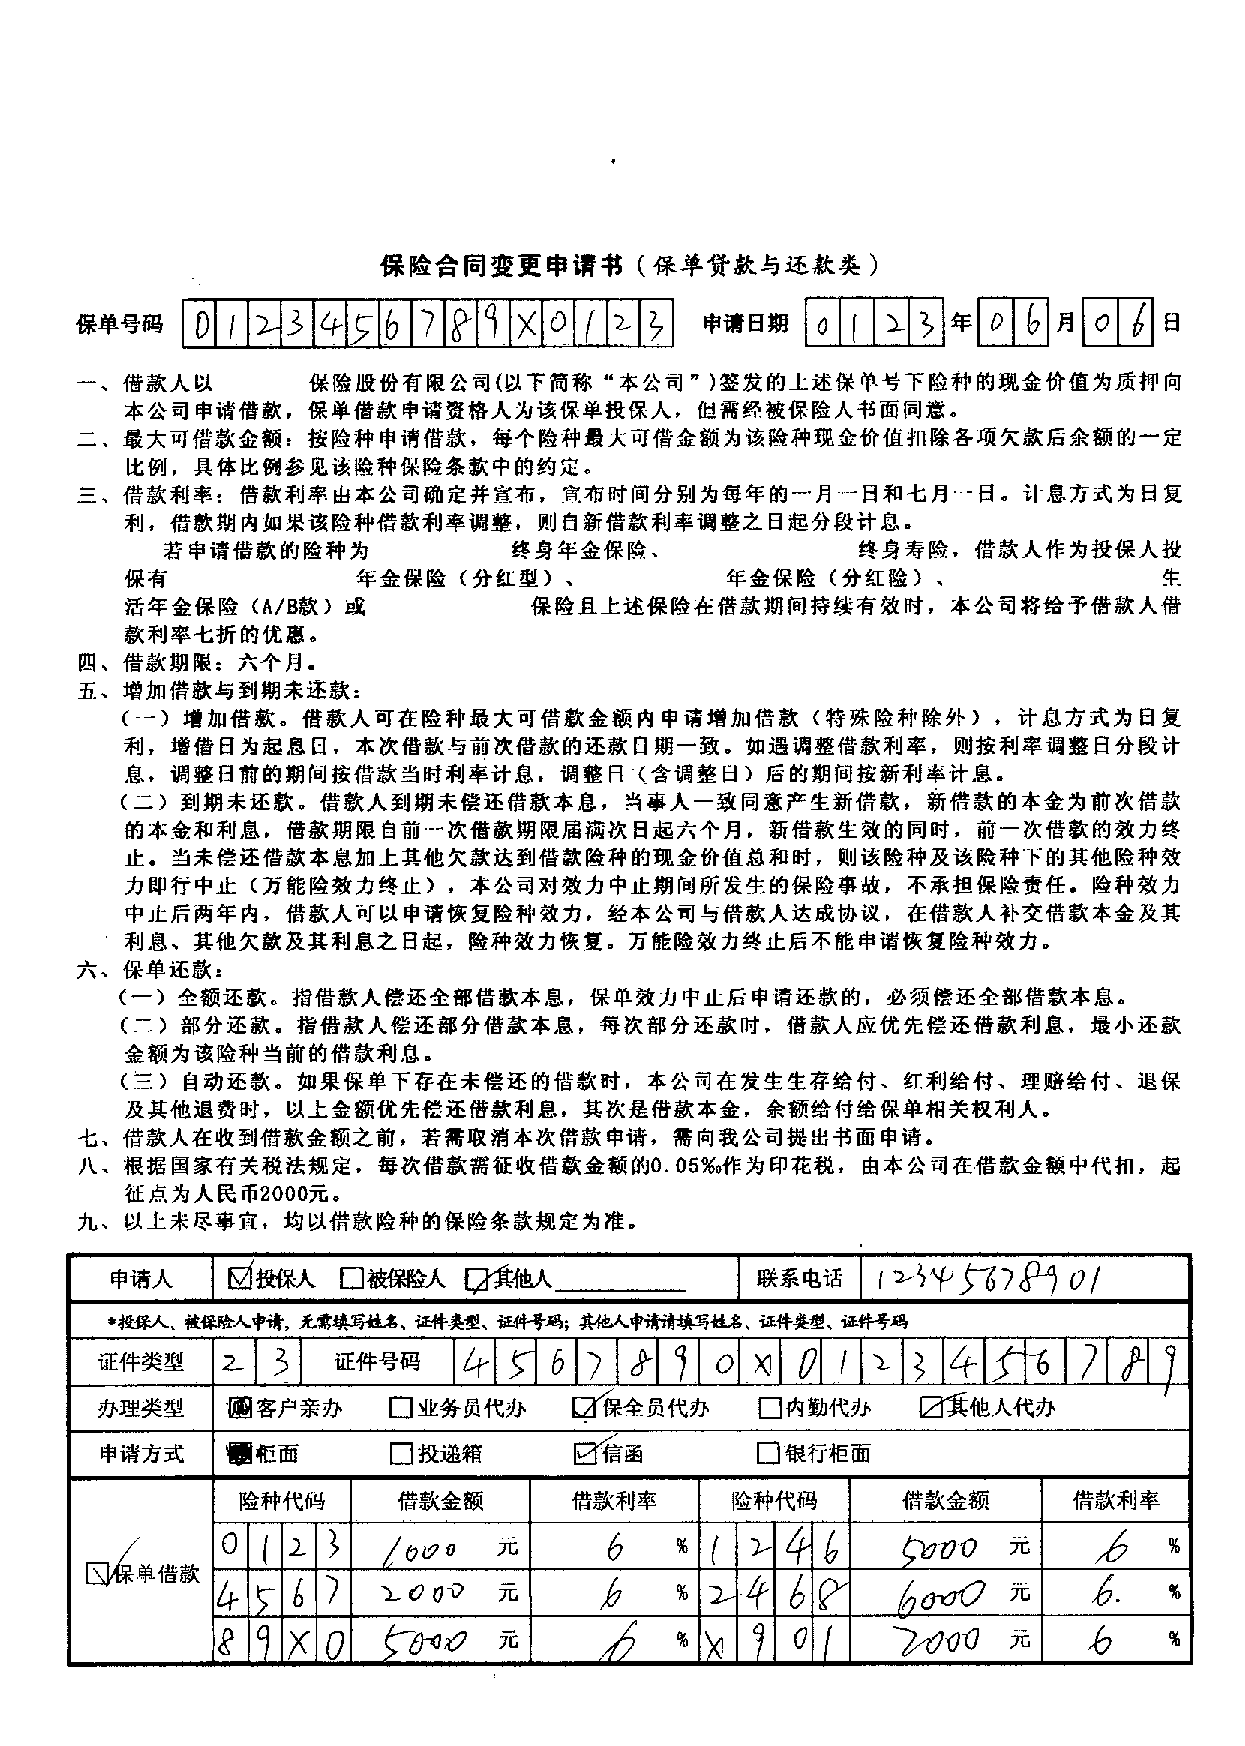 保险合同变更申请书（保单贷款与还款类）
保单号码 0123456789X0123 申请日期 0123年06月06日
一、借款人以 保险股份有限公司(以下简称“本公司”)签发的上述保单号下险种的现金价值为质押向
本公司申请借款，保单借款申请资格人为该保单投保人，但需经被保险人书面同意。
二、最大可借款金额：按险种申请借款，每个险种最大可借金额为该险种现金价值扣除各项欠款后余额的一定
比例，具体比例参见该险种保险条款中的约定。
三、借款利率：借款利率由本公司确定并宣布，宣布时间分别为每年的一月一日和七月一日。计息方式为日复
利，借款期内如果该险种借款利率调整，则自新借款利率调整之日起分段计息。
若申请借款的险种为 终身年金保险、 终身寿险，借款人作为投保人投
保有 年金保险（分红型）、 年金保险（分红险）、 生
活年金保险（A/B款）或 保险且上述保险在借款期间持续有效时，本公司将给予借款人借
款利率七折的优惠。
四、借款期限：六个月。
五、增加借款与到期未还款：
（一）增加借款。借款人可在险种最大可借款金额内申请增加借款（特殊险种除外），计息方式为日复
利，增借日为起息日，本次借款与前次借款的还款日期一致。如遇调整借款利率，则按利率调整日分段计
息，调整日前的期间按借款当时利率计息，调整日（含调整日）后的期间按新利率计息。
（二）到期未还款。借款人到期未偿还借款本息，当事人一致同意产生新借款，新借款的本金为前次借款
的本金和利息，借款期限自前一次借款期限届满次日起六个月，新借款生效的同时，前一次借款的效力终
止。当未偿还借款本息加上其他欠款达到借款险种的现金价值总和时，则该险种及该险种下的其他险种效
力即行中止（万能险效力终止），本公司对效力中止期间所发生的保险事故，不承担保险责任。险种效力
中止后两年内，借款人可以申请恢复险种效力，经本公司与借款人达成协议，在借款人补交借款本金及其
利息、其他欠款及其利息之日起，险种效力恢复。万能险效力终止后不能申请恢复险种效力。
六、保单还款：
（一）全额还款。指借款人偿还全部借款本息，保单效力中止后申请还款的，必须偿还全部借款本息。
（二）部分还款。指借款人偿还部分借款本息，每次部分还款时，借款人应优先偿还借款利息，最小还款
金额为该险种当前的借款利息。
（三）自动还款。如果保单下存在未偿还的借款时，本公司在发生生存给付、红利给付、理赔给付、退保
及其他退费时，以上金额优先偿还借款利息，其次是借款本金，余额给付给保单相关权利人。
七、借款人在收到借款金额之前，若需取消本次借款申请，需向我公司提出书面申请。
八、根据国家有关税法规定，每次借款需征收借款金额的0.05‰作为印花税，由本公司在借款金额中代扣，起
征点为人民币2000元。
九、以上未尽事宜，均以借款险种的保险条款规定为准。
申请人 ☑投保人 □被保险人 ☑其他人 联系电话 12345678901
*投保人、被保险人申请，无需填写姓名、证件类型、证件号码；其他人申请请填写姓名、证件类型、证件号码
证件类型 23 证件号码 4567890X0123456789
办理类型 客户亲办 □业务员代办 ☑保全员代办 □内勤代办 ☑其他人代办
申请方式 柜面 □投递箱 ☑信函 □银行柜面
险种代码 借款金额 借款利率 险种代码 借款金额 借款利率
0123 1000 元 6 % 1246 5000 元 6 %
☑保单借款 4567 2000 元 6 % 2468 6000 元 6. %
89X0 5000 元 6 % X901 2000 元 6 %